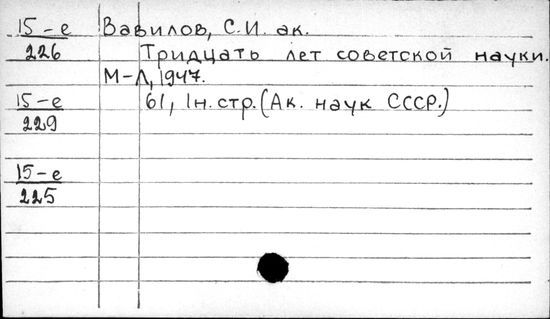 15-е Вавилов, С.И. ак.
226 Тридцать лет советской науки.
М-Л, 1947.
15-е 61, 1н.стр. (Ак. наук СССР.)
229
15-е
225